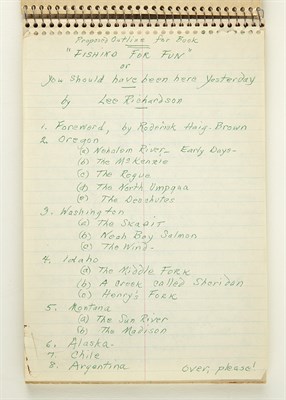 Proposed Outline for Book
"FISHING FOR FUN"
or
You Should have been here Yesterday
by Lee Richardson
1. Foreword, by Roderick Haig-Brown
2. Oregon
(a) Nehalem River - Early Days -
(b) The McKenzie
(c) The Rogue
(d) The North Umpqua
(e) The Deschutes
3. Washington
(a) The Skagit
(b) Neah Bay Salmon
(c) The Wind -
4. Idaho
(a) The Middle Fork
(b) A Creek called Sheridan
(c) Henry's Fork
5. Montana
(a) The Sun River
(b) The Madison
6. Alaska -
7. Chile
8. Argentina
Over, please!